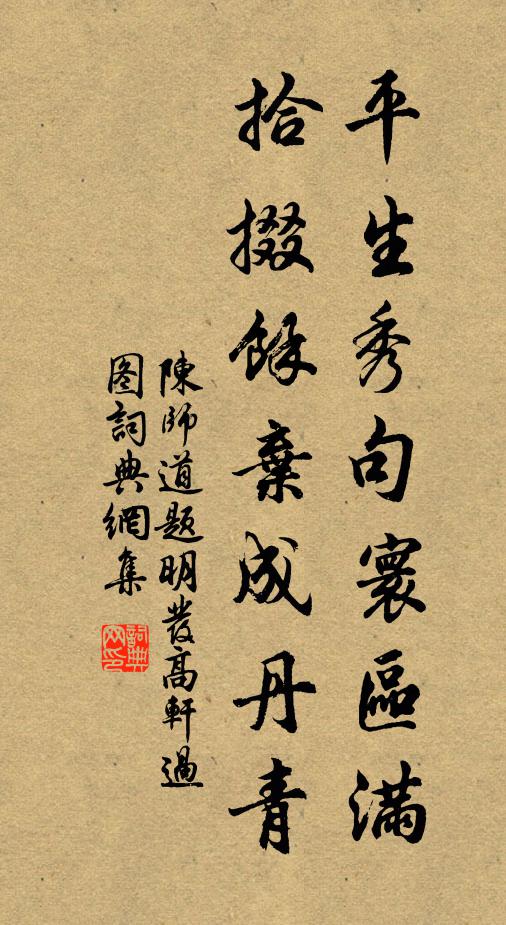 平生秀句寰區滿
拾掇餘棄成丹青
陳師道題明發高軒過
图詞典網集
詞典网印